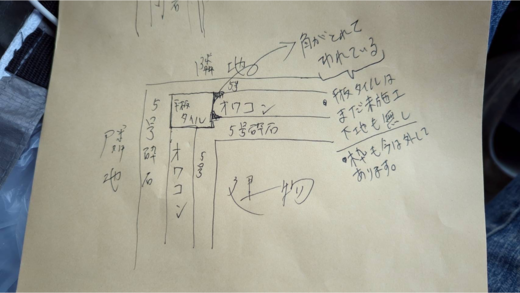 角がとれて
われている
隣地
5号
平板
タイル
オワコン
5号砕石
5号砕石
オワコン
5号
隣地
建物
・平板タイルは
まだ未施工
下地も無し
・枠も今は外して
あります。